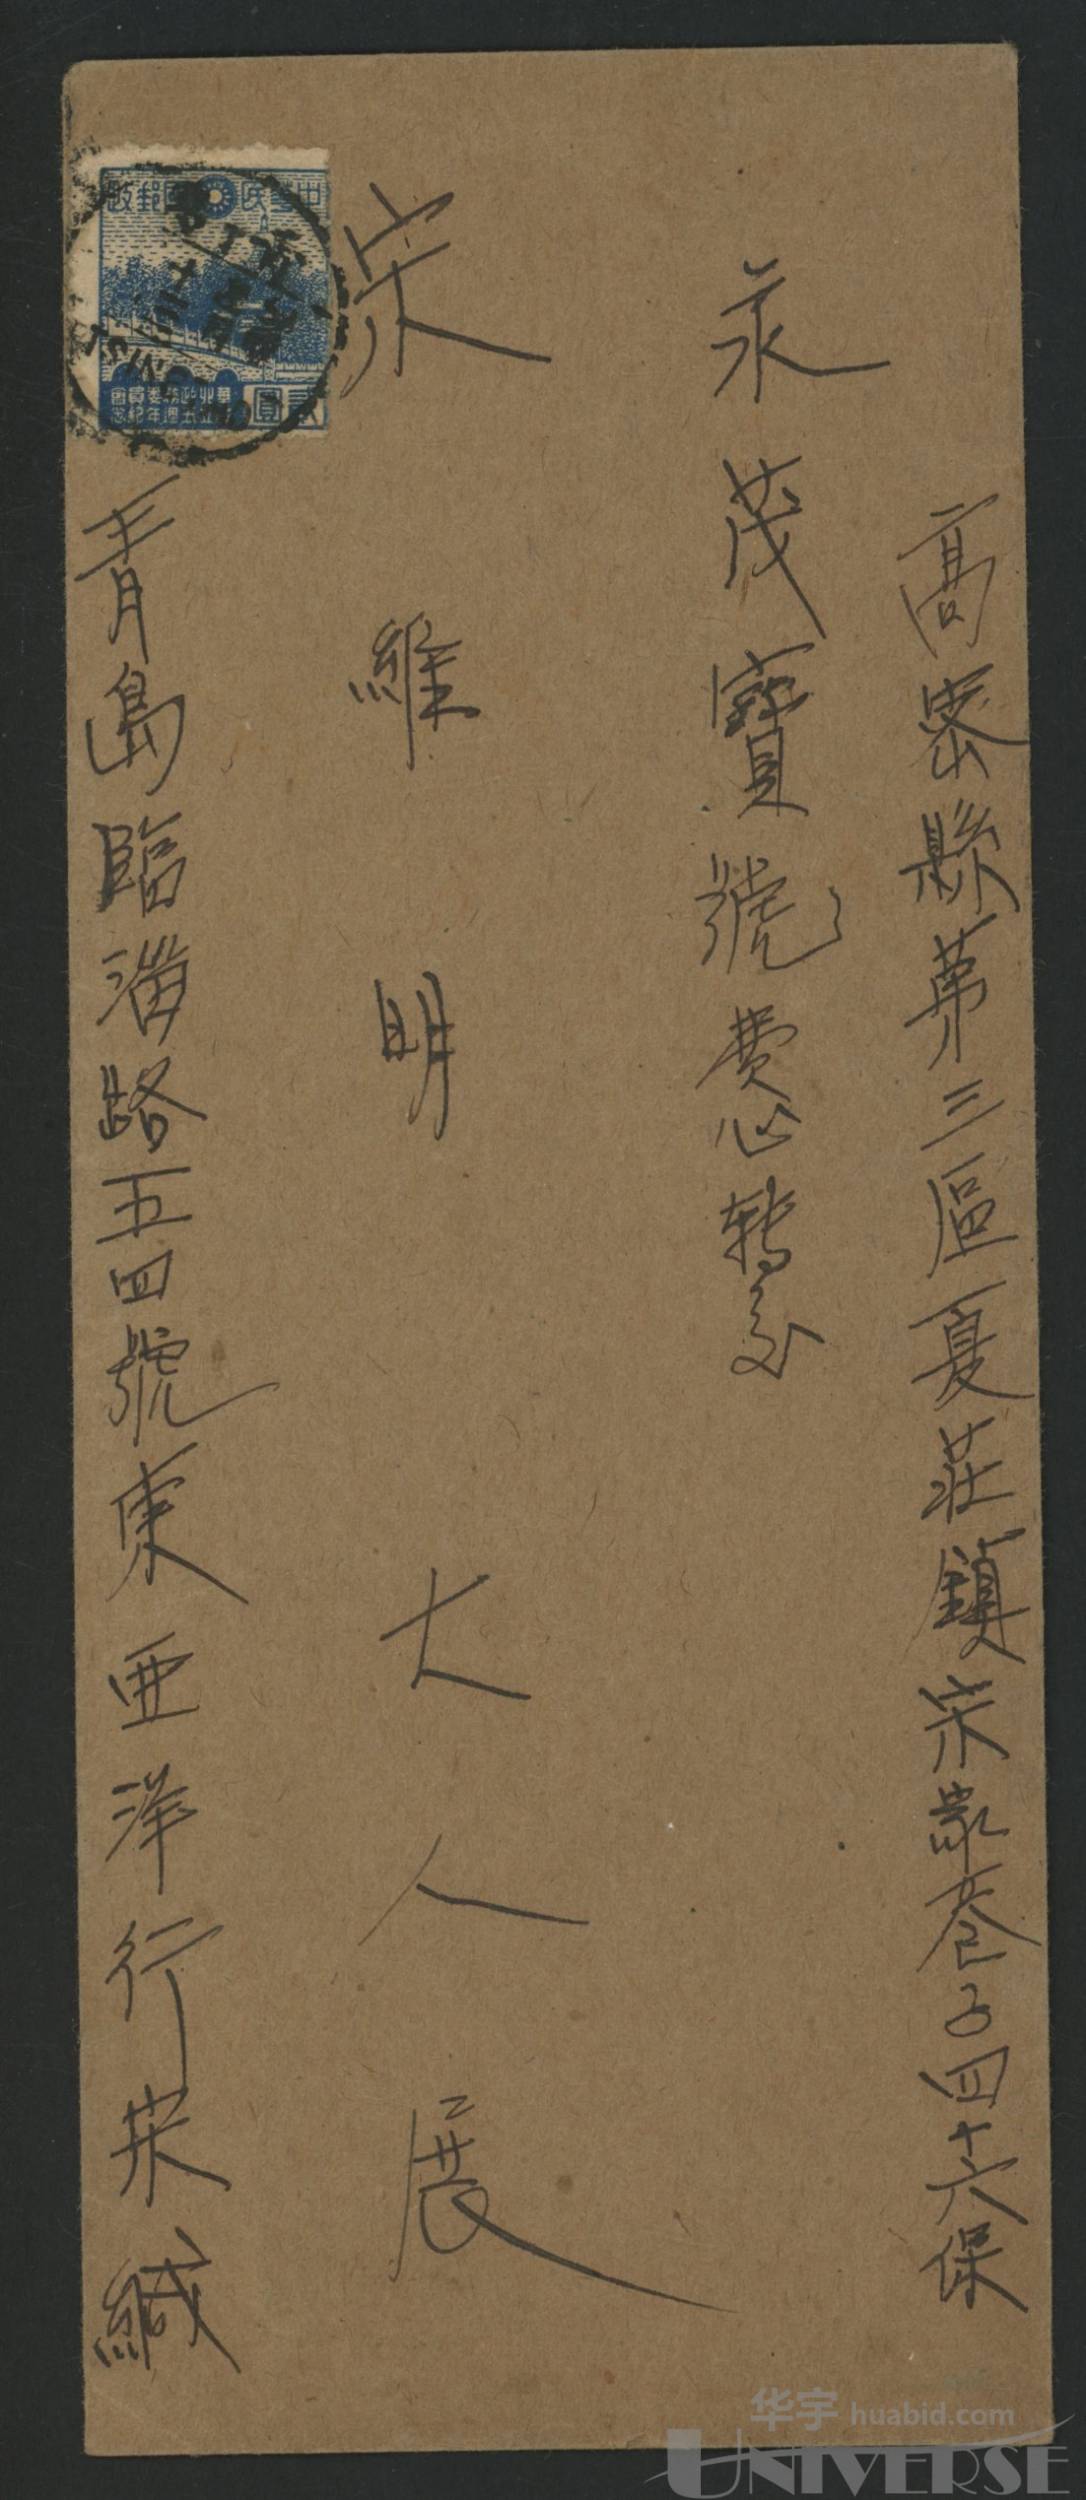 高密縣第三區夏莊鎮宋家巷子四十六保
永茂寶號費心轉交
宋維明大人展
青島臨淄路五四號東亜洋行宋緘
中華民國郵政
貳圓
華北政務委員會
成立五週年紀念
华宇 huabid.com
UNIVERSE